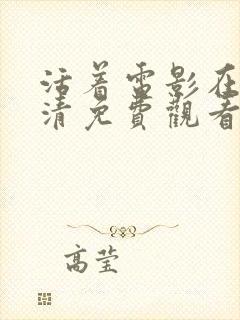 活着雷影在
清免費觀看
高莹